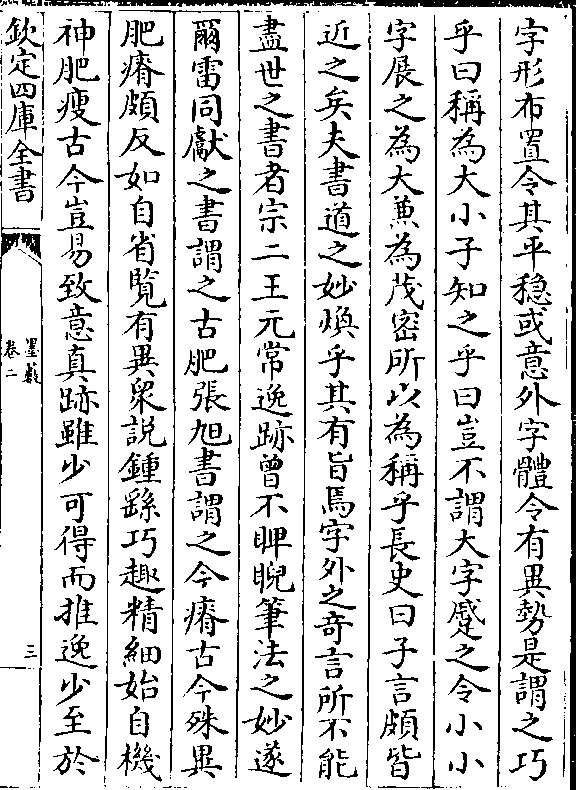 字形布置令其平穩或意外字體令有異勢是謂之巧
乎曰稱為大小子知之乎曰豈不謂大字蹙之令小小
字展之為大兼為茂密所以為稱乎長史曰子言頗皆
近之矣夫書道之妙煥乎其有旨焉字外之奇言所不能
盡世之書者宗二王元常逸跡曾不睥睨筆法之妙遂
爾雷同獻之書謂之古肥張旭書謂之今瘠古今殊異
肥瘠頗反如自省覽有異衆説鍾繇巧趣精細始自機
神肥瘦古今豈易致意真跡雖少可得而推逸少至於
欽定四庫全書
墨藪
卷二
三